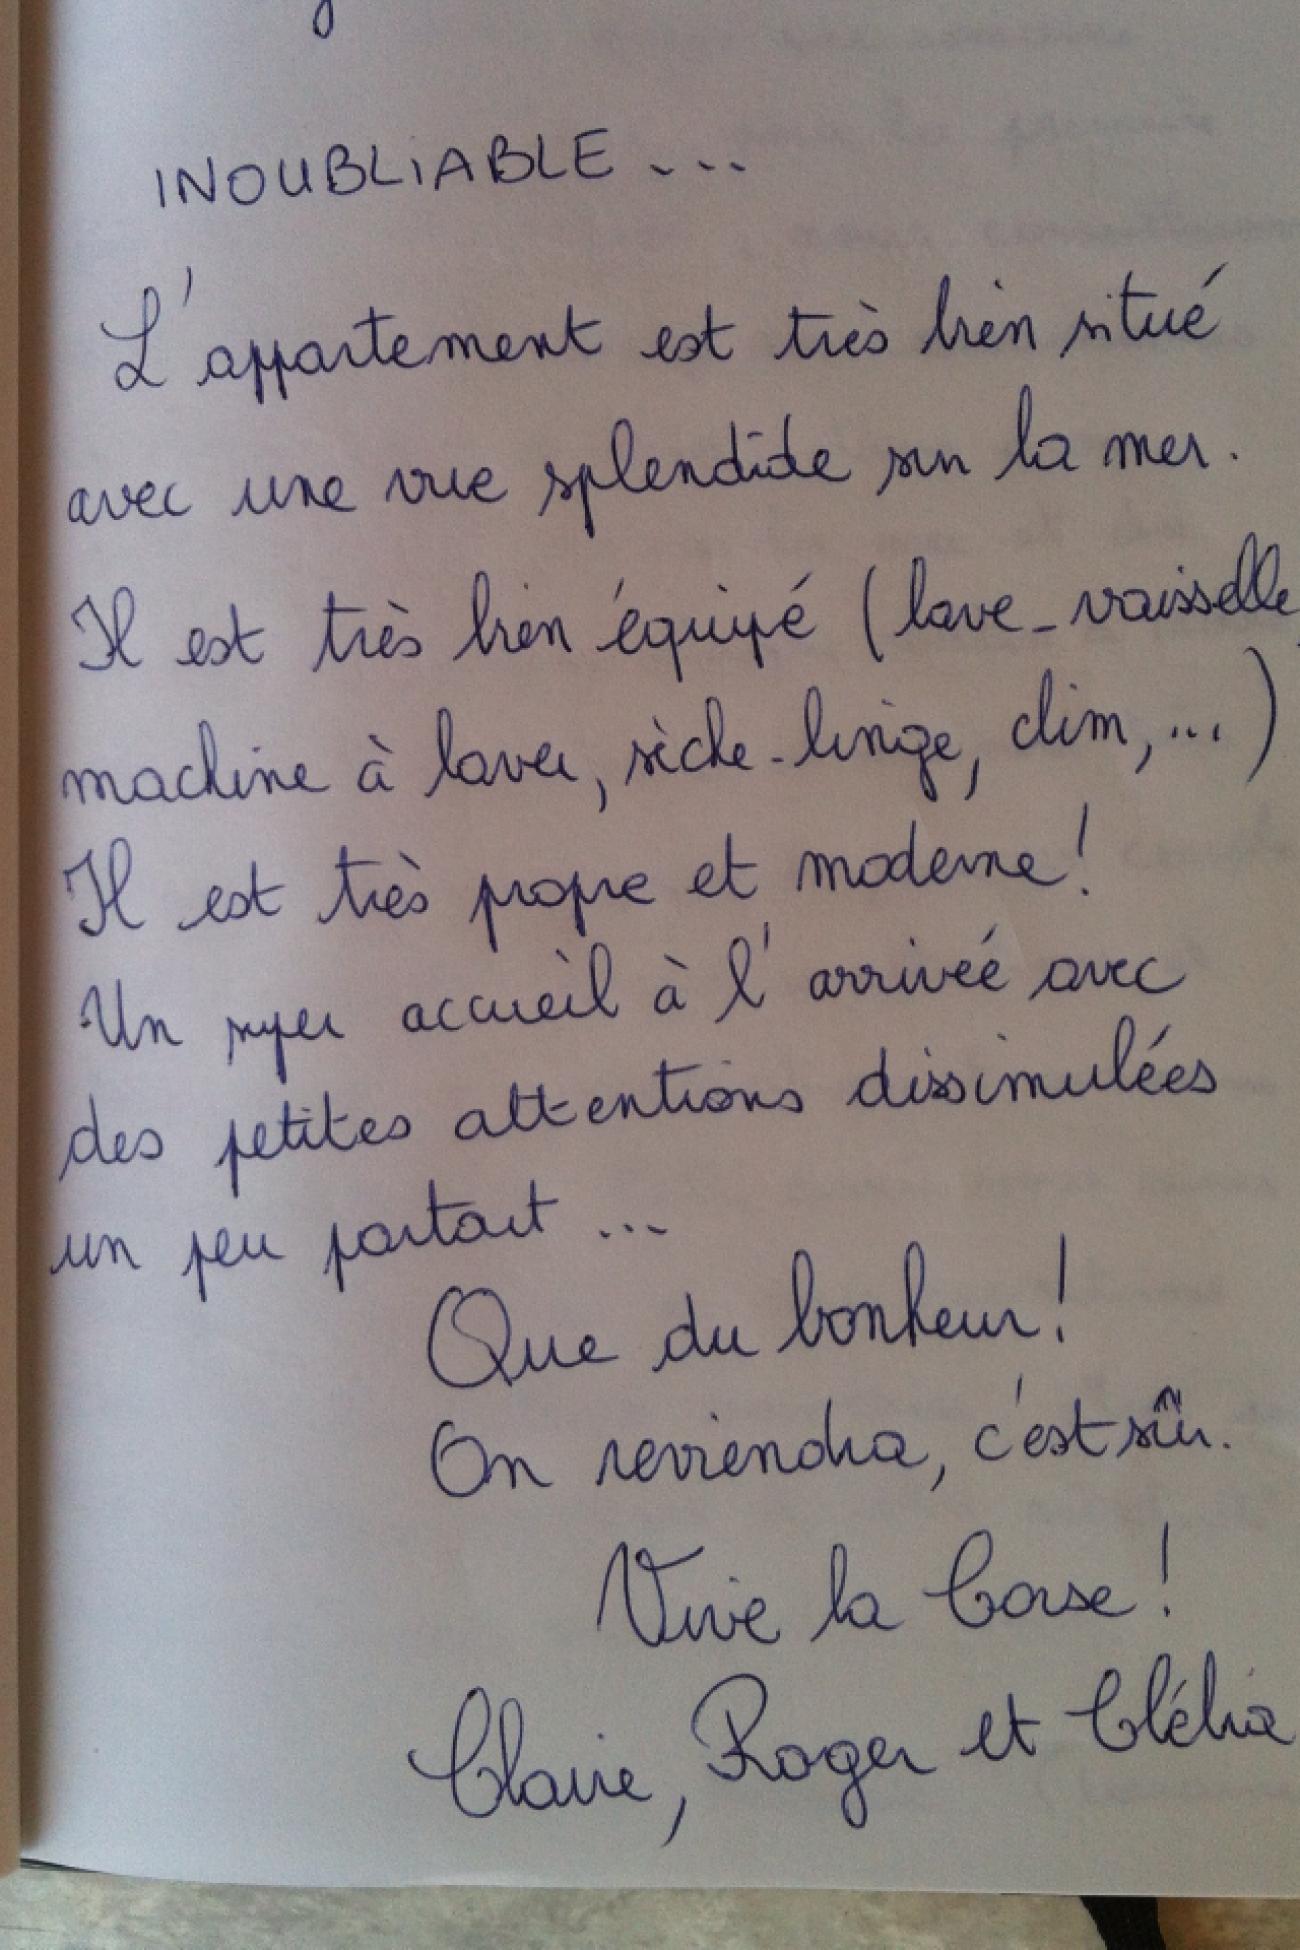 INOUBLIABLE ...
L'appartement est très bien situé
avec une vue splendide sur la mer.
Il est très bien équipé (lave-vaisselle,
machine à laver, sèche-linge, clim, ...)
Il est très propre et moderne !
Un super accueil à l'arrivée avec
des petites attentions dissimulées
un peu partout ...
Que du bonheur !
On reviendra, c'est sûr.
Vive la Corse !
Claire, Roger et Clélia